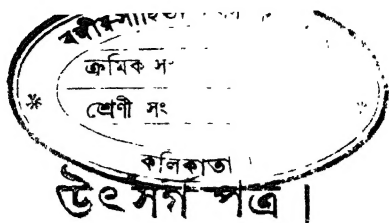 বঙ্গীয়-সাহিত্য
ক্রমিক স
শ্রেণী সং
কলিকাতা
উৎসর্গ পত্র।